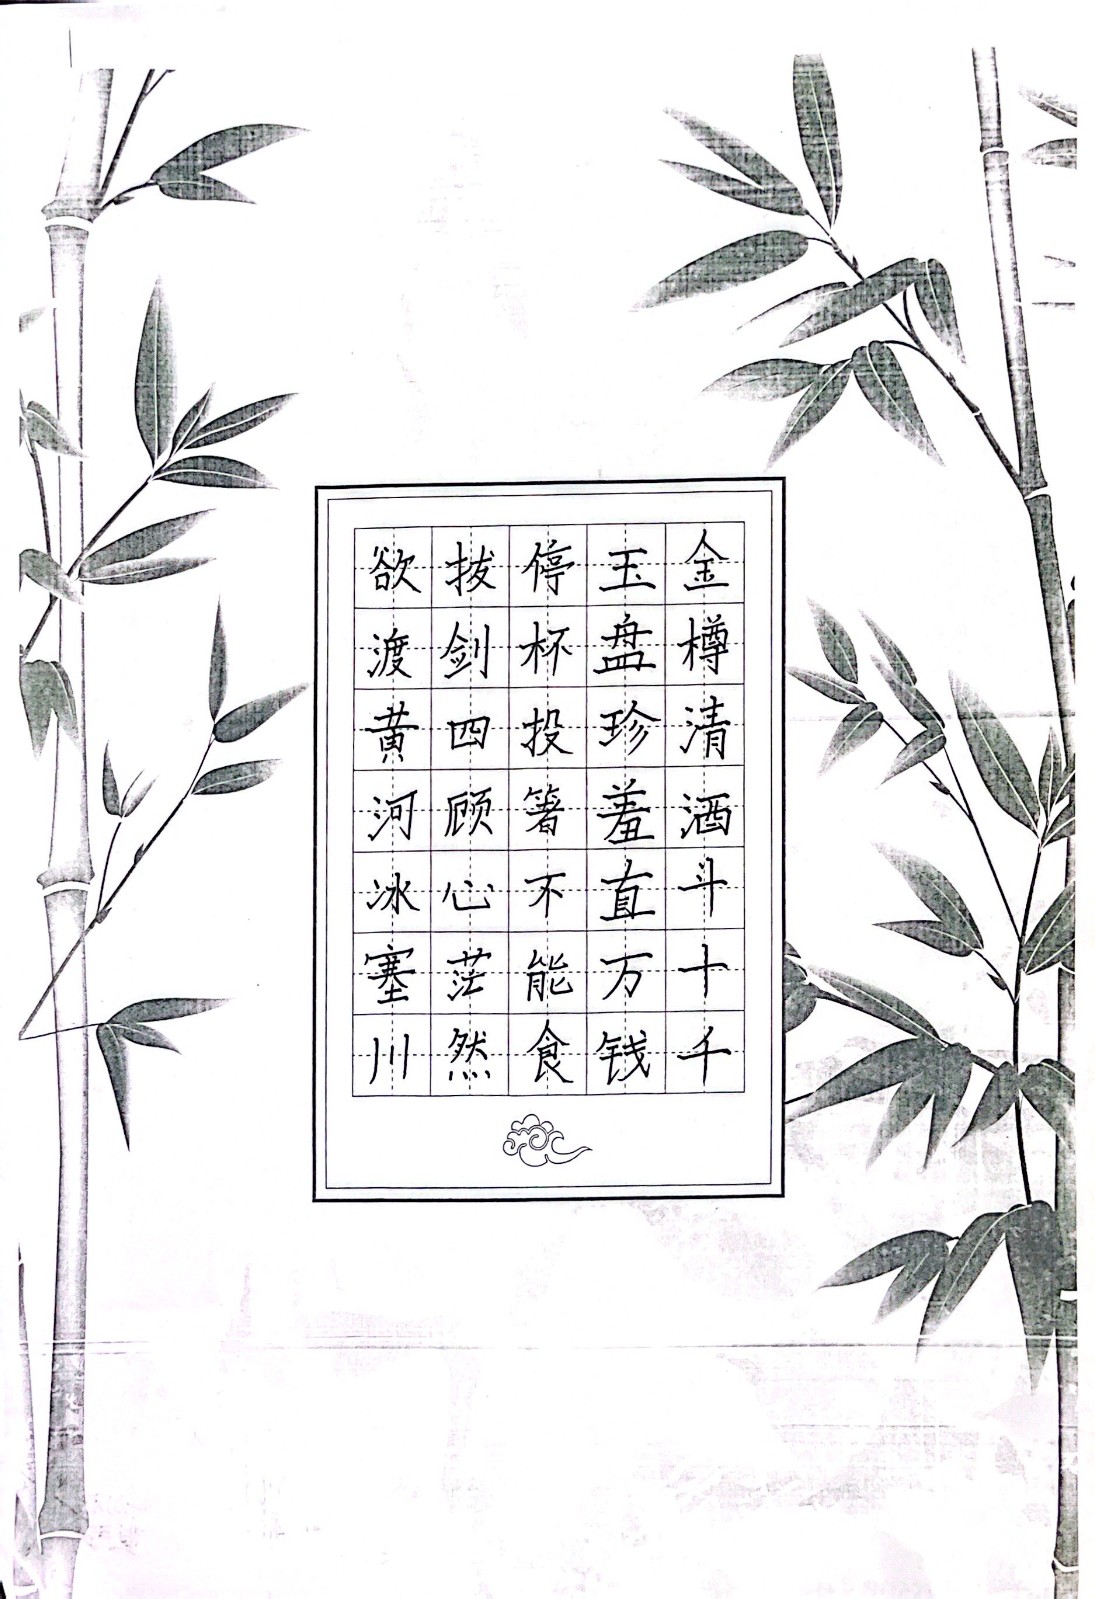 金樽清酒斗十千
玉盘珍羞直万钱
停杯投箸不能食
拔剑四顾心茫然
欲渡黄河冰塞川